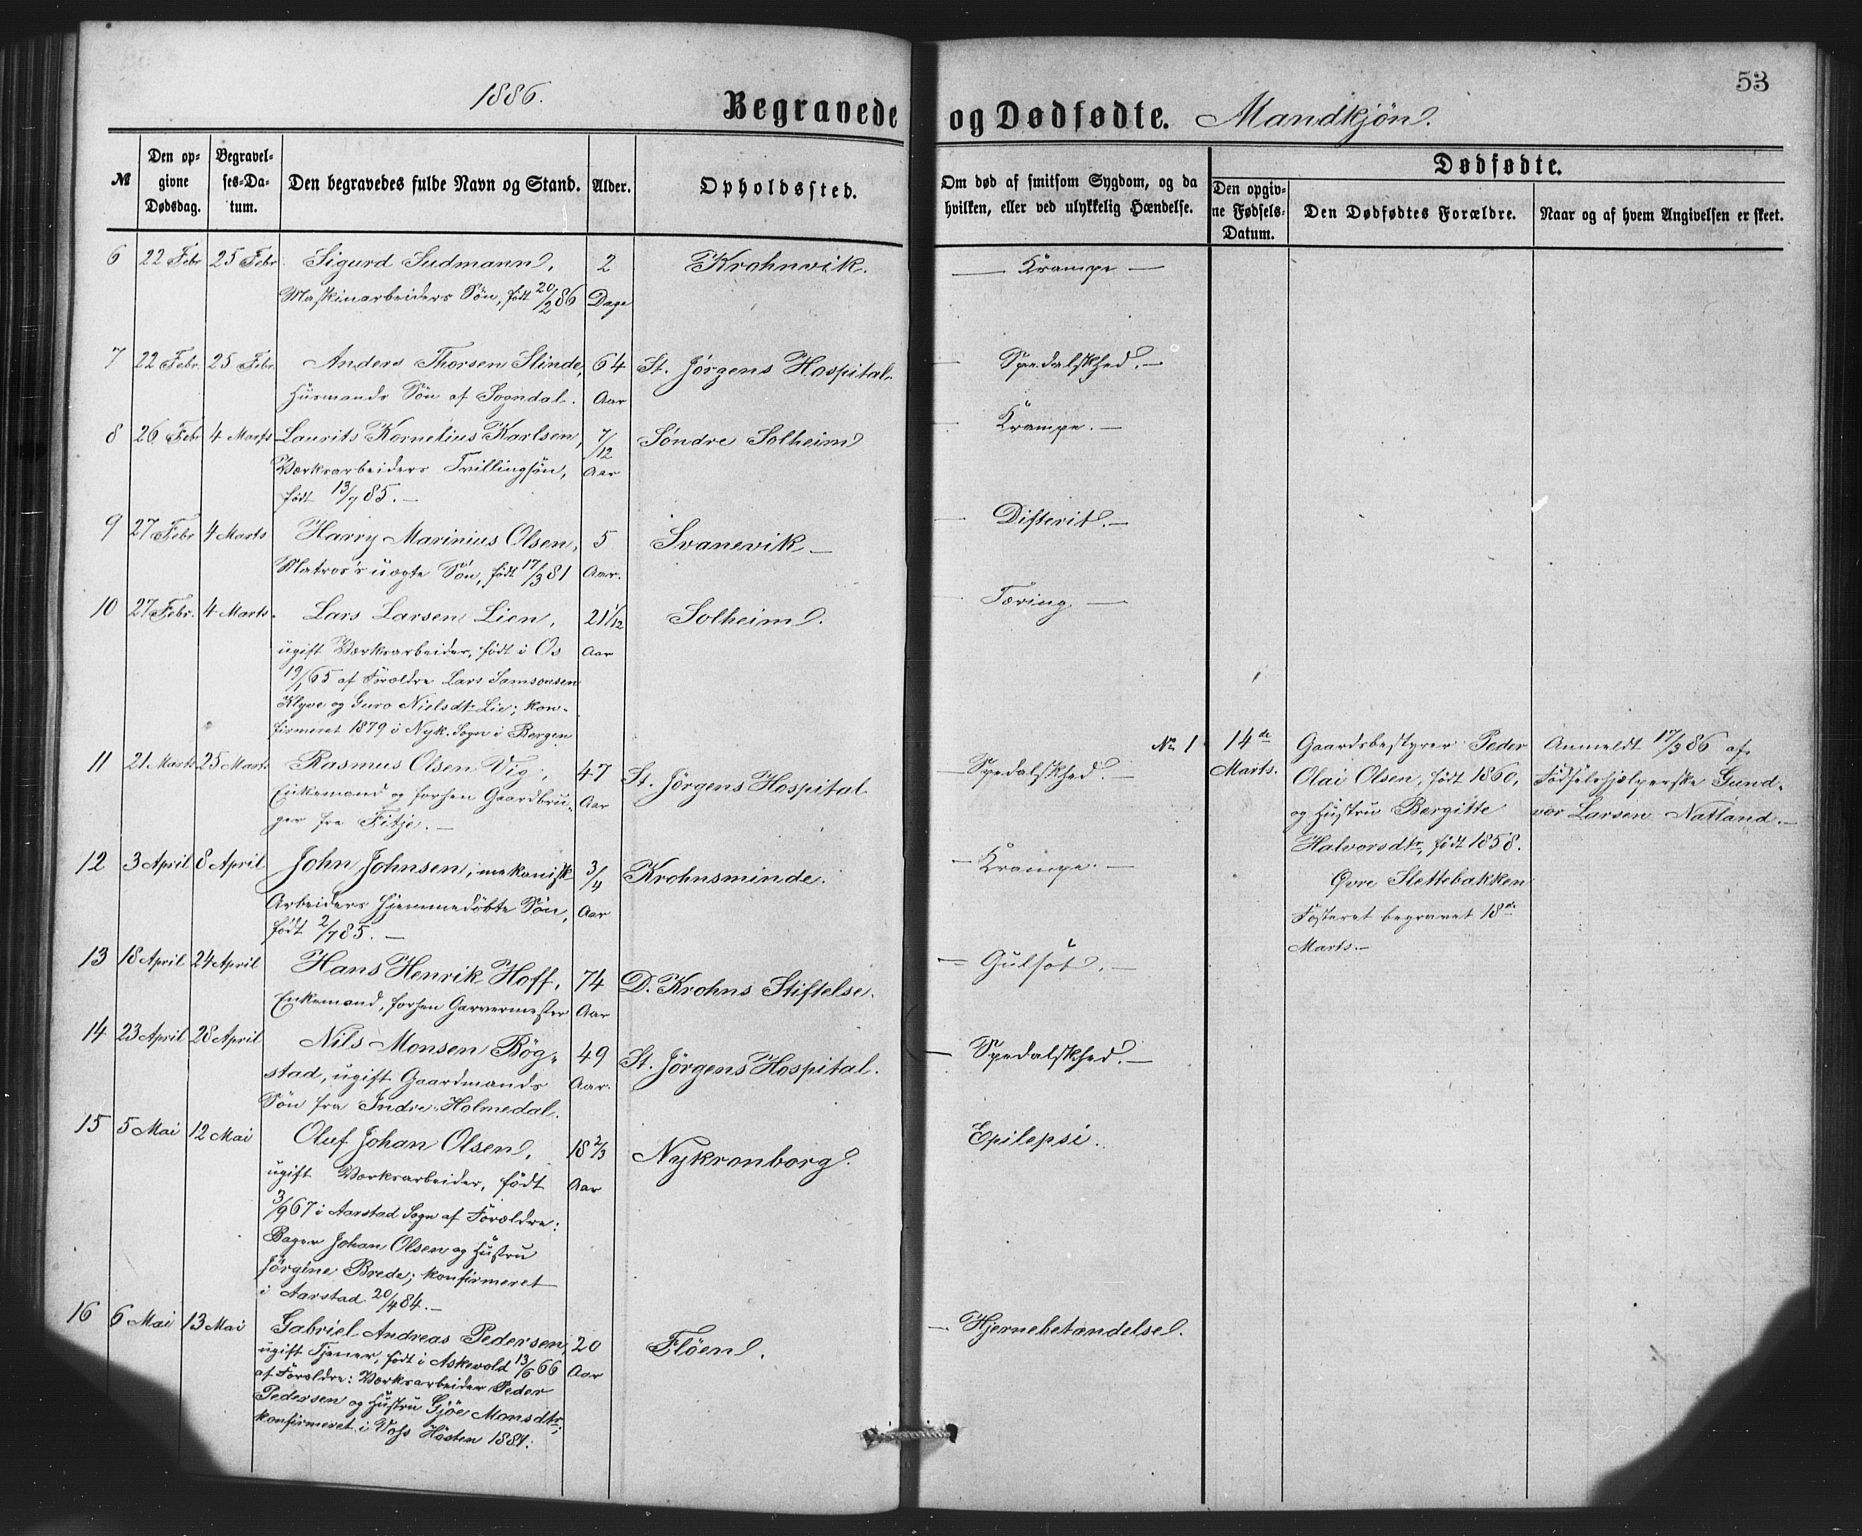 53
1886.
Begravede og Dødfødte. Mandkjøn.
№
Den op-
givne
Dødsdag.
Begravel-
ses-Da-
tum.
Den begravedes fulde Navn og Stand.
Alder.
Opholdssted.
Om død af smitsom Sygdom, og da
hvilken, eller ved ulykkelig Hændelse.
Dødfødte.
Den opgiv-
ne Fødsels-
Datum.
Den Dødfødtes Forældre.
Naar og af hvem Angivelsen er skeet.
6 22 Febr 25 Febr. Sigurd Sudmann, 2 Krohnvik. — Krampe —
Maskinarbeiders Søn, født 20/2 86 Dage
7 22 Febr. 25 Febr. Anders Thorsen Slinde, 64 St. Jørgens Hospital. — Spedalskhed. —
Husmands Søn af Sogndal. Aar
8 26 Febr 4 Marts Laurits Kornelius Karlsen, 7/12 Søndre Solheim — Krampe. —
Værksarbeiders Tvillingsøn, Aar
født 13/7 85. —
9 27 Febr 4 Marts Harry Marinius Olsen, 5 Svanevik — — Difterit. —
Matros's uægte Søn, født 17/3 81 Aar.
10 27 Febr. 4 Marts. Lars Larsen Lien, 21 1/12 Solheim. — Tæring —
ugift Værksarbeider, født i Os Aar
19/1 65 af Forældre Lars Samsonsen
Klyve og Guro Nielsdtr Lie; kon-
firmeret 1879 i Nyk. Sogn i Bergen
11 21 Marts 25 Marts Rasmus Olsen Vig, 47 St. Jørgens Hospital — Spedalskhed. —
Enkemand og forhen Gaardbru- Aar
ger fra Fitje. —
No 1 14de Marts. Gaardsbestyrer Peder
Olai Olsen, født 1860,
og Hustru Bergitte
Halvorsdtr, født 1858.
Øvre Slettebakken
Fosteret begravet 18de
Marts —
Anmeldt 17/3 86 af
Fødselshjælperske Gund-
vor Larsen Natland. —
12 3 April 8 April John Johnsen, mekanisk 3/4 Krohnsminde. — Krampe. —
Arbeiders hjemmedøbte Søn, Aar
født 2/7 85. —
13 18 April 24 April Hans Henrik Hoff, 74 D. Krohns Stiftelse. — Gulsot. —
Enkemand, forhen Garvermester Aar
14 23 April 28 April Nils Monsen Bøg- 49 St. Jørgens Hospital. — Spedalskhed. —
stad, ugift Gaardmands Aar.
Søn fra Indre Holmedal.
15 5 Mai 12 Mai Oluf Johan Olsen, 18 2/3 Nykronborg. Epilepsi.
ugift Værksarbeider, født Aar
3/9 67 i Aarstad Sogn af Forældre:
Bager Johan Olsen og Hustru
Jørgine Brede; konfirmeret
i Aarstad 20/4 84. —
16 6 Mai 13 Mai Gabriel Andreas Pedersen, 20 Fløen. — Hjernebetændelse.
ugift Tjener, født i Askevold 13/6 66 Aar
af Forældre: Værksarbeider Peder
Pedersen og Hustru Gjøe Monsdtr;
konfirmeret i Voss Høsten 1881.